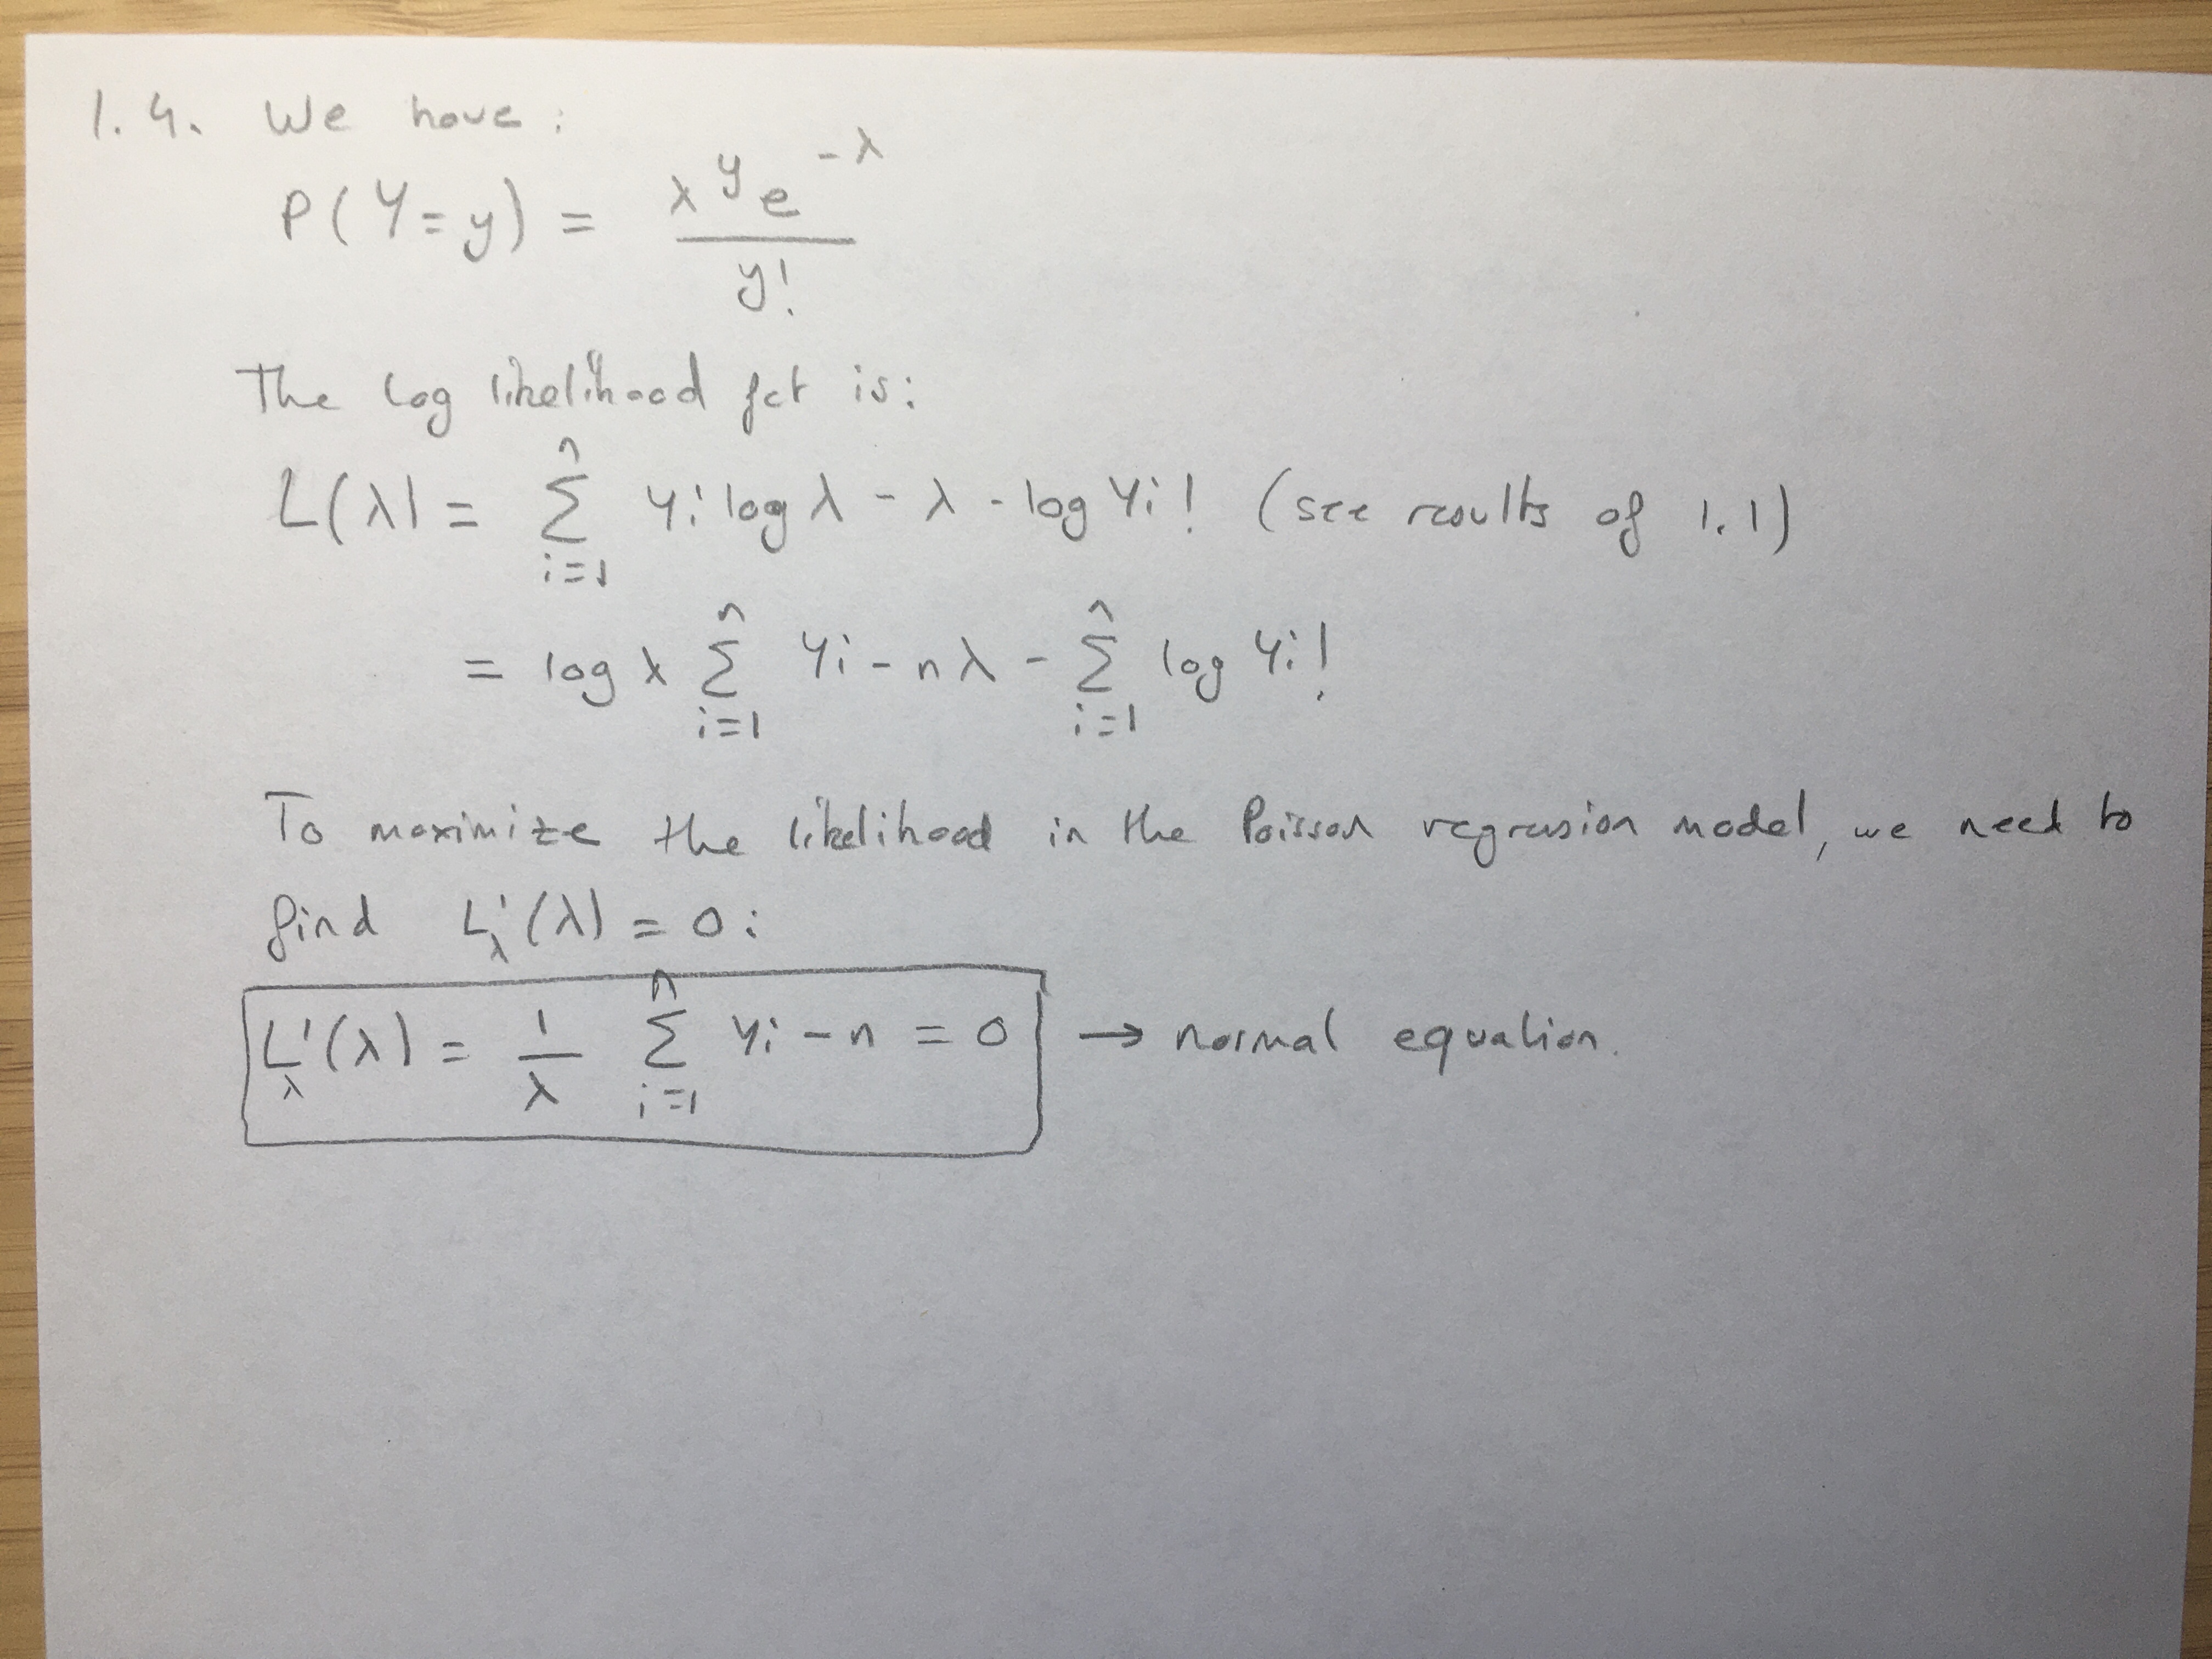 1.4. We have:
P(Y=y) = λ^y e^{-λ} / y!
The log likelihood fct is:
L(λ) = ∑_{i=1}^{n} Yi log λ - λ - log Yi! (see results of 1.1)
= log λ ∑_{i=1}^{n} Yi - nλ - ∑_{i=1}^{n} log Yi!
To maximize the likelihood in the Poisson regression model, we need to
find L'_λ(λ) = 0:
L'_λ(λ) = 1/λ ∑_{i=1}^{n} Yi - n = 0 → normal equation.